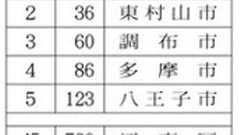 2 36 東村山市
3 60 調布市
4 86 多摩市
5 123 八王子市